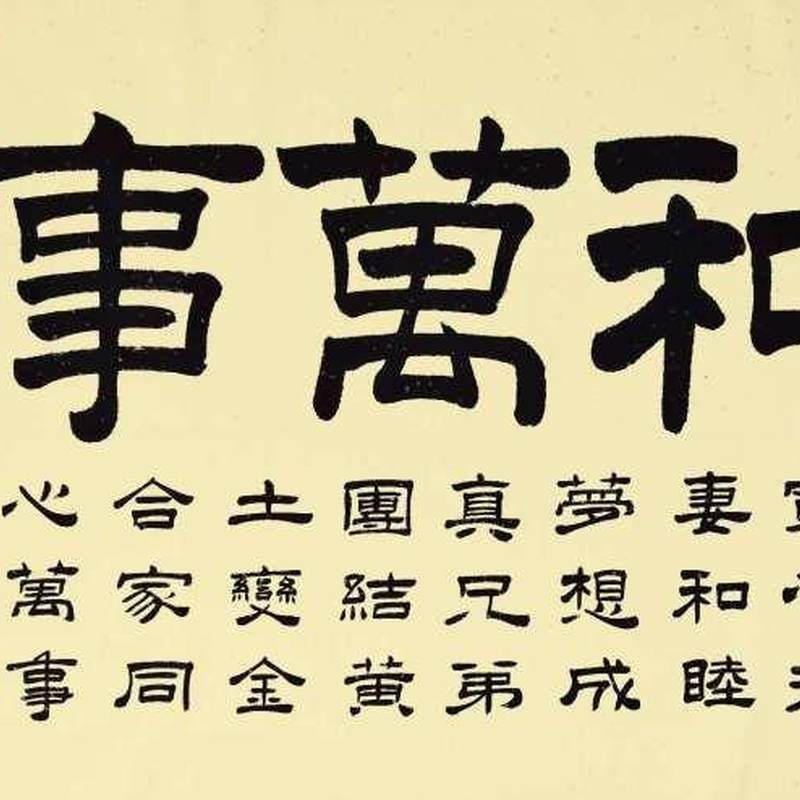 和萬事
妻和睦
夢想成
真兄弟
團結黃
土變金
合家同
心萬事